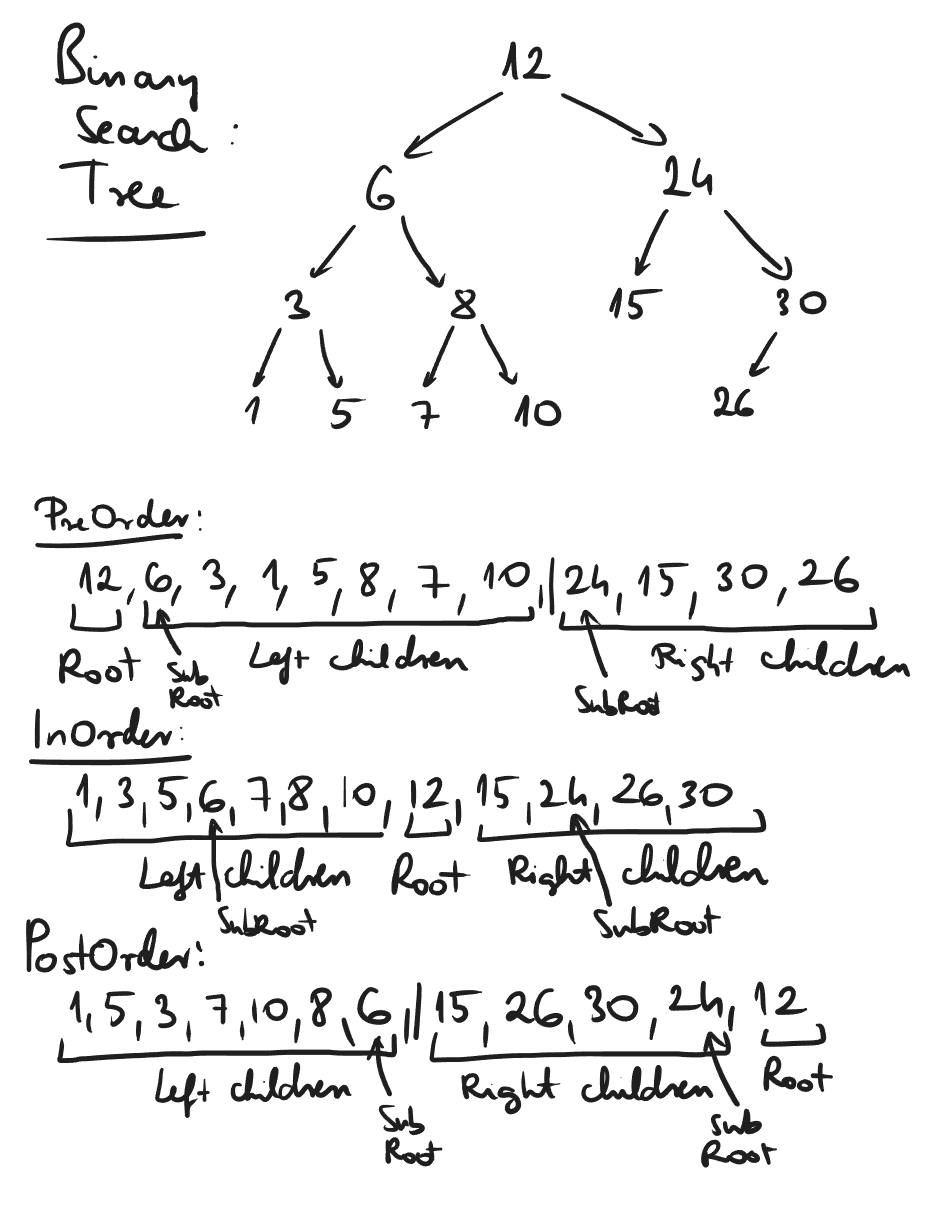 Binary
Search :
Tree
12
6 24
3 8 15 30
1 5 7 10 26
PreOrder:
12, 6, 3, 1, 5, 8, 7, 10, | 24, 15, 30, 26
Root Sub Root Left children SubRoot Right children
InOrder:
1, 3, 5, 6, 7, 8, 10, 12, 15, 24, 26, 30
Left children Root Right children
SubRoot SubRoot
PostOrder:
1, 5, 3, 7, 10, 8, 6, | 15, 26, 30, 24, 12
Left children Right children Root
Sub Root Sub Root